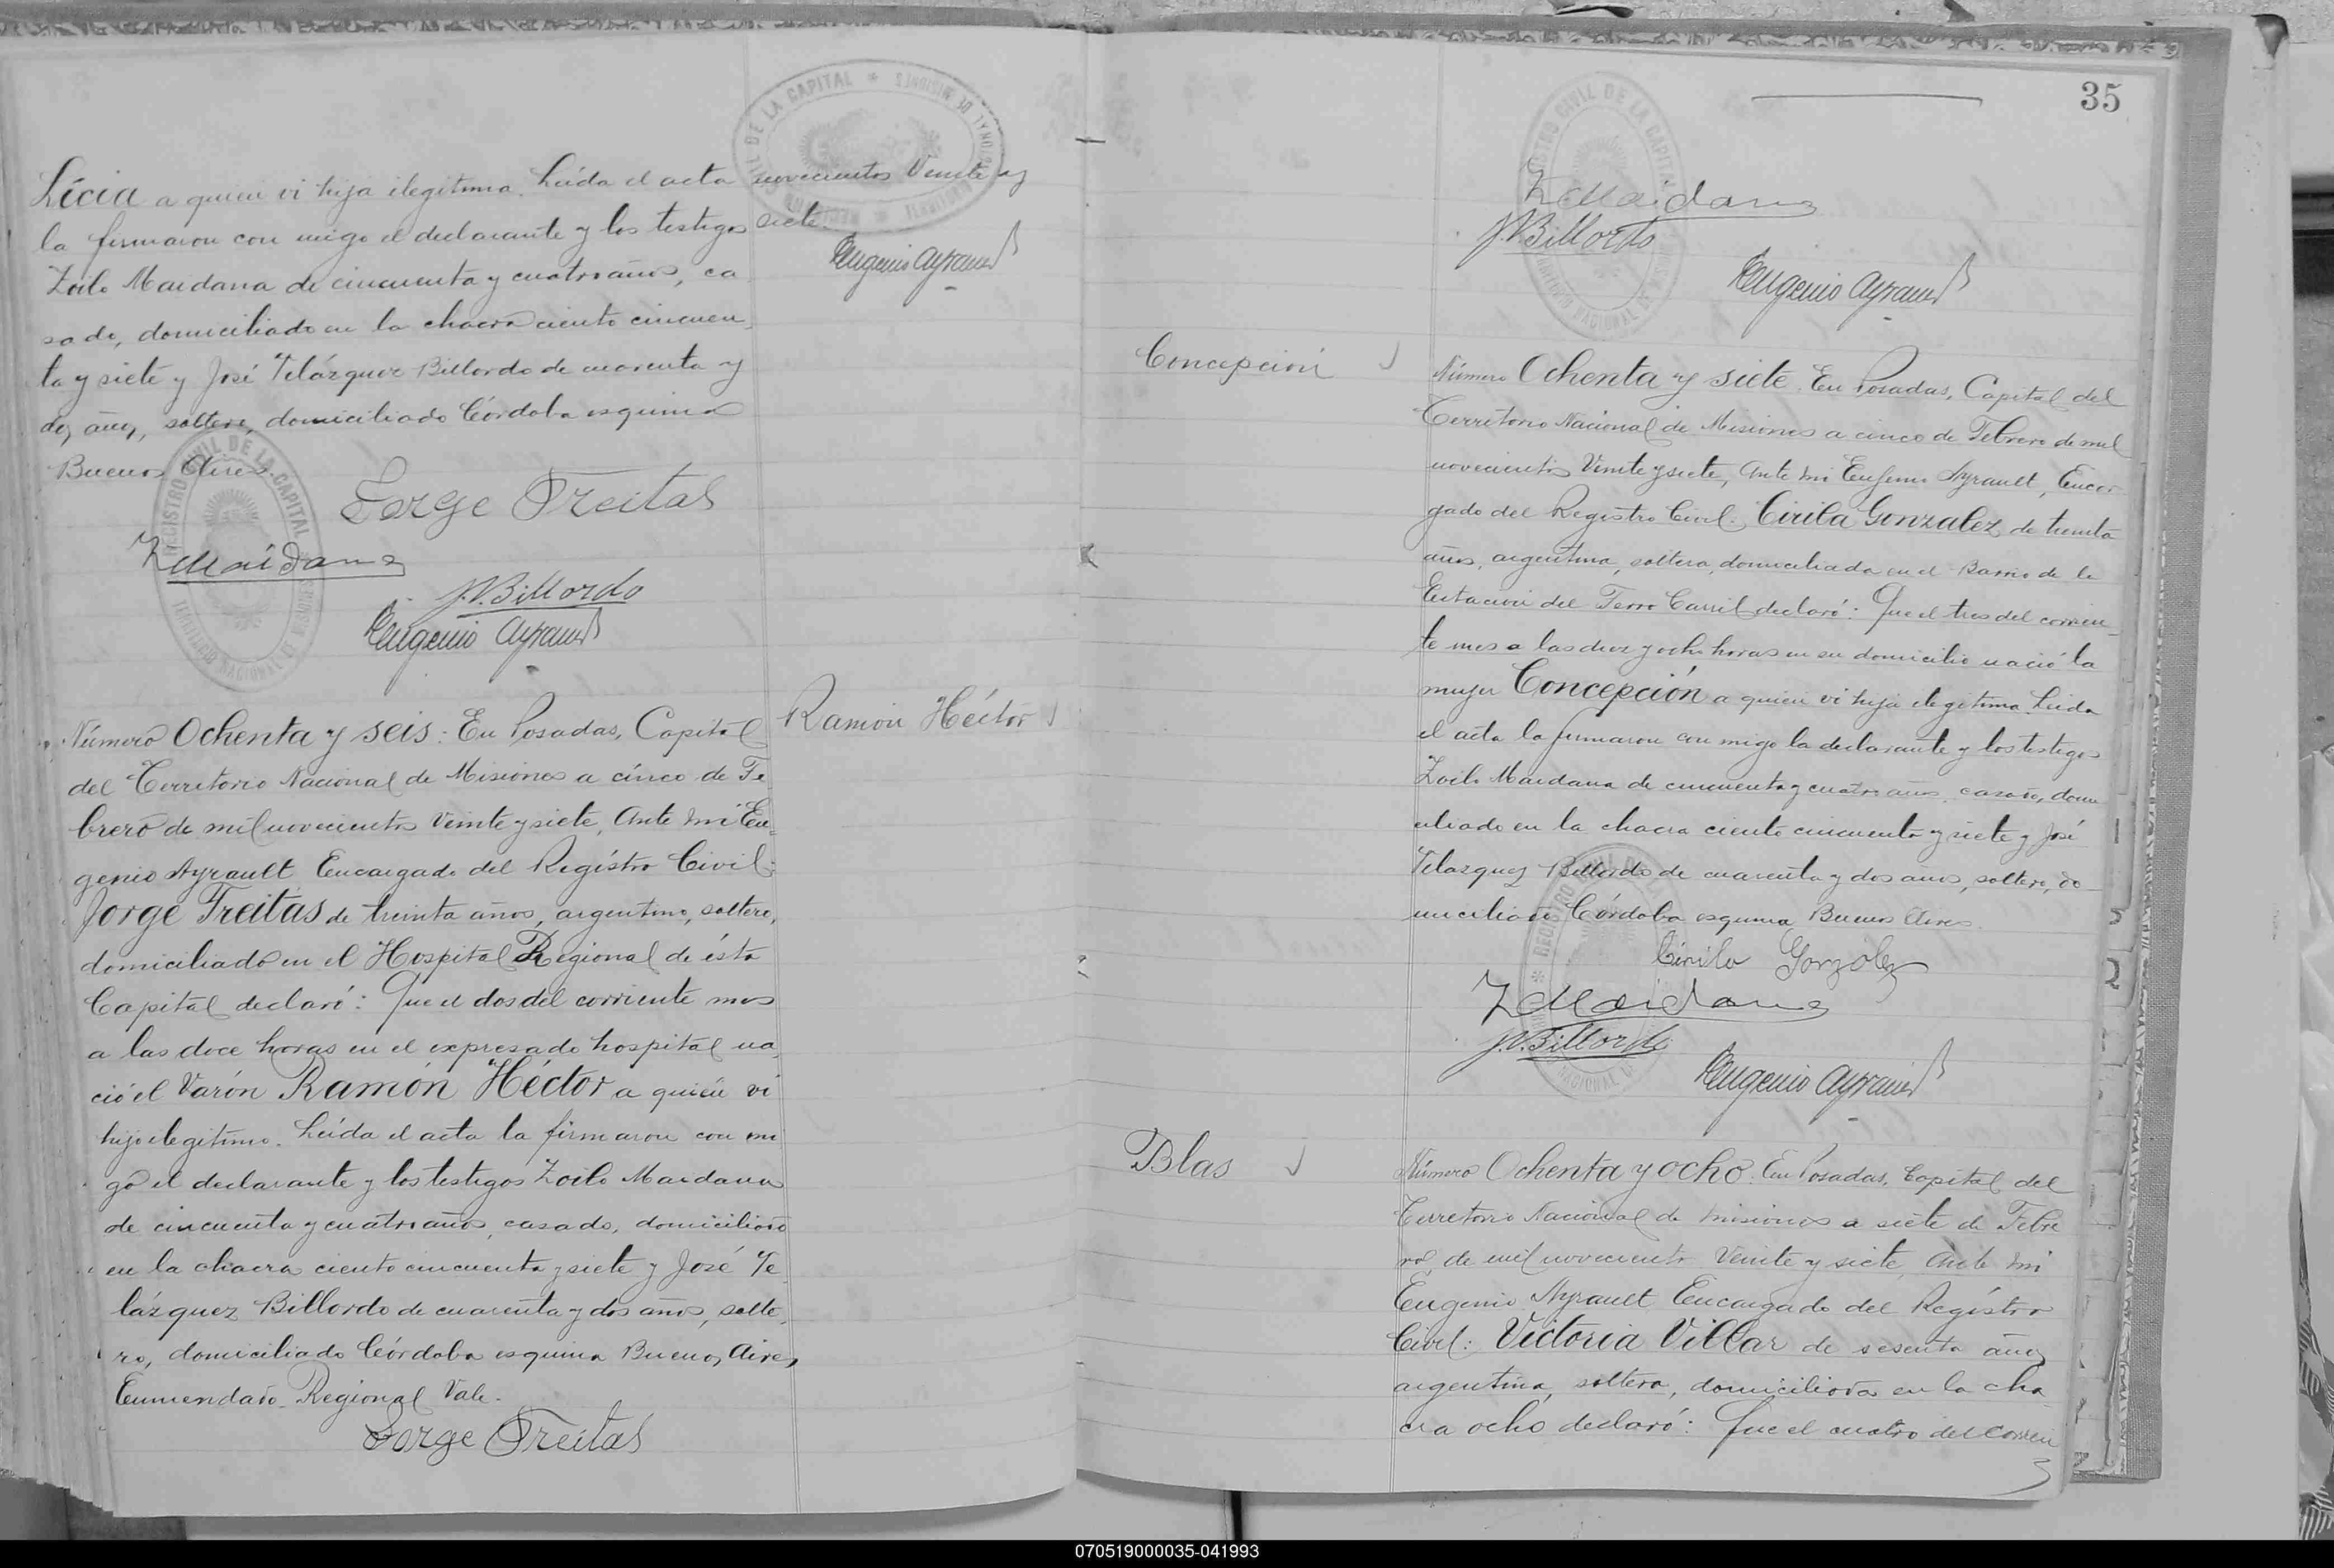 Licia a quien vi hija ilegitima. Leída el acta
la firmaron con migo el declarante y los testigos
Zoilo Maidana de cincuenta y cuatro años, ca
sado, domiciliado en la chacra ciento cincuen
ta y siete y José Telázquez Billordo de cuarenta y
dos años, soltero, domiciliado Córdoba esquina
Buenos Aires.
Jorge Freitas
Z Maidana
J.V. Billordo
Eugenio Ayrault
novecientos Veinte y
siete.
Eugenio Ayrault
REGISTRO CIVIL DE LA CAPITAL
TERRITORIO NACIONAL DE MISIONES
Ramón Héctor
Número Ochenta y seis: En Posadas, Capital
del Territorio Nacional de Misiones a cinco de Fe
brero de mil novecientos Veinte y siete, Ante mi Eu=
genio Ayrault Encargado del Registro Civil:
Jorge Freitas de treinta años, argentino, soltero,
domiciliado en el Hospital Regional de ésta
Capital declaró: Que el dos del corriente mes
a las doce horas en el expresado hospital na
ció el Varón Ramón Héctor a quien vi
hijo ilegitimo. Leída el acta la firmaron con mi
go el declarante y los testigos Zoilo Maidana
de cincuenta y cuatro años, casado, domiciliado
en la chacra ciento cincuenta y siete y José Te
lázquez Billordo de cuarenta y dos años, solte
ro, domiciliado Córdoba esquina Buenos Aires
Enmendado Regional Vale.
Jorge Freitas
35
Z Maidana
J.V. Billordo
Eugenio Ayrault
Concepción
Número Ochenta y siete. En Posadas, Capital del
Territorio Nacional de Misiones a cinco de Febrero de mil
novecientos Veinte y siete, Ante mi Eugenio Ayrault, Encar
gado del Registro Civil: Cirila Gonzalez de treinta
años, argentina, soltera, domiciliada en el Barrio de la
Estación del Ferro Carril declaró: Que el tres del corrien
te mes a las diez y ocho horas en su domicilio nació la
mujer Concepción a quien vi hija ilegitima. Leida
el acta la firmaron con migo la declarante y los testigos
Zoilo Maidana de cincuenta y cuatro años, casado, domi
ciliado en la chacra ciento cincuenta y siete y José
Telazquez Billordo de cuarenta y dos años, soltero, do
miciliado Córdoba esquina Buenos Aires.
Cirila Gonzalez
Z Maidana
J.V. Billordo
Eugenio Ayrault
Blas
Número Ochenta y ocho. En Posadas, Capital del
Territorio Nacional de Misiones a siete de Febre
ro, de mil novecientos Veinte y siete, Ante mi
Eugenio Ayrault Encargado del Registro
Civil: Victoria Villar de sesenta años
argentina, soltera, domiciliada en la cha
cra ocho declaró: Que el cuatro del corrien
070519000035-041993